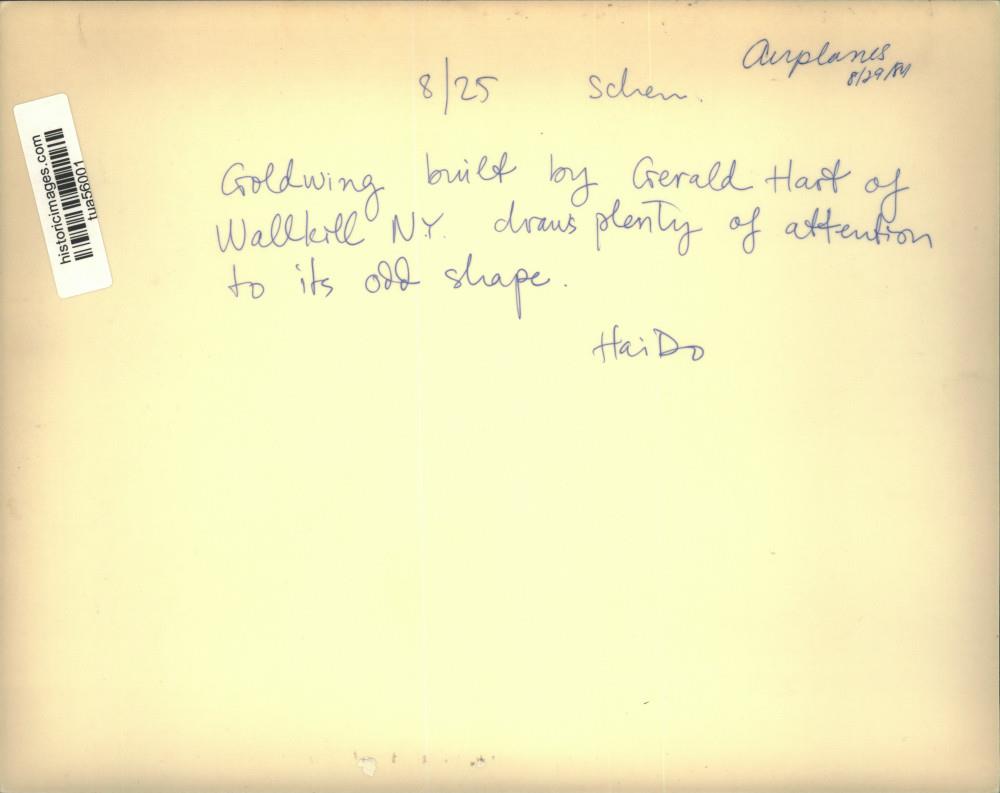 Airplanes
8/29/84
8/25 Schen.
Goldwing built by Gerald Hart of
Wallkill N.Y. draws plenty of attention
to its odd shape.
Hai Do
historicimages.com
tua56001